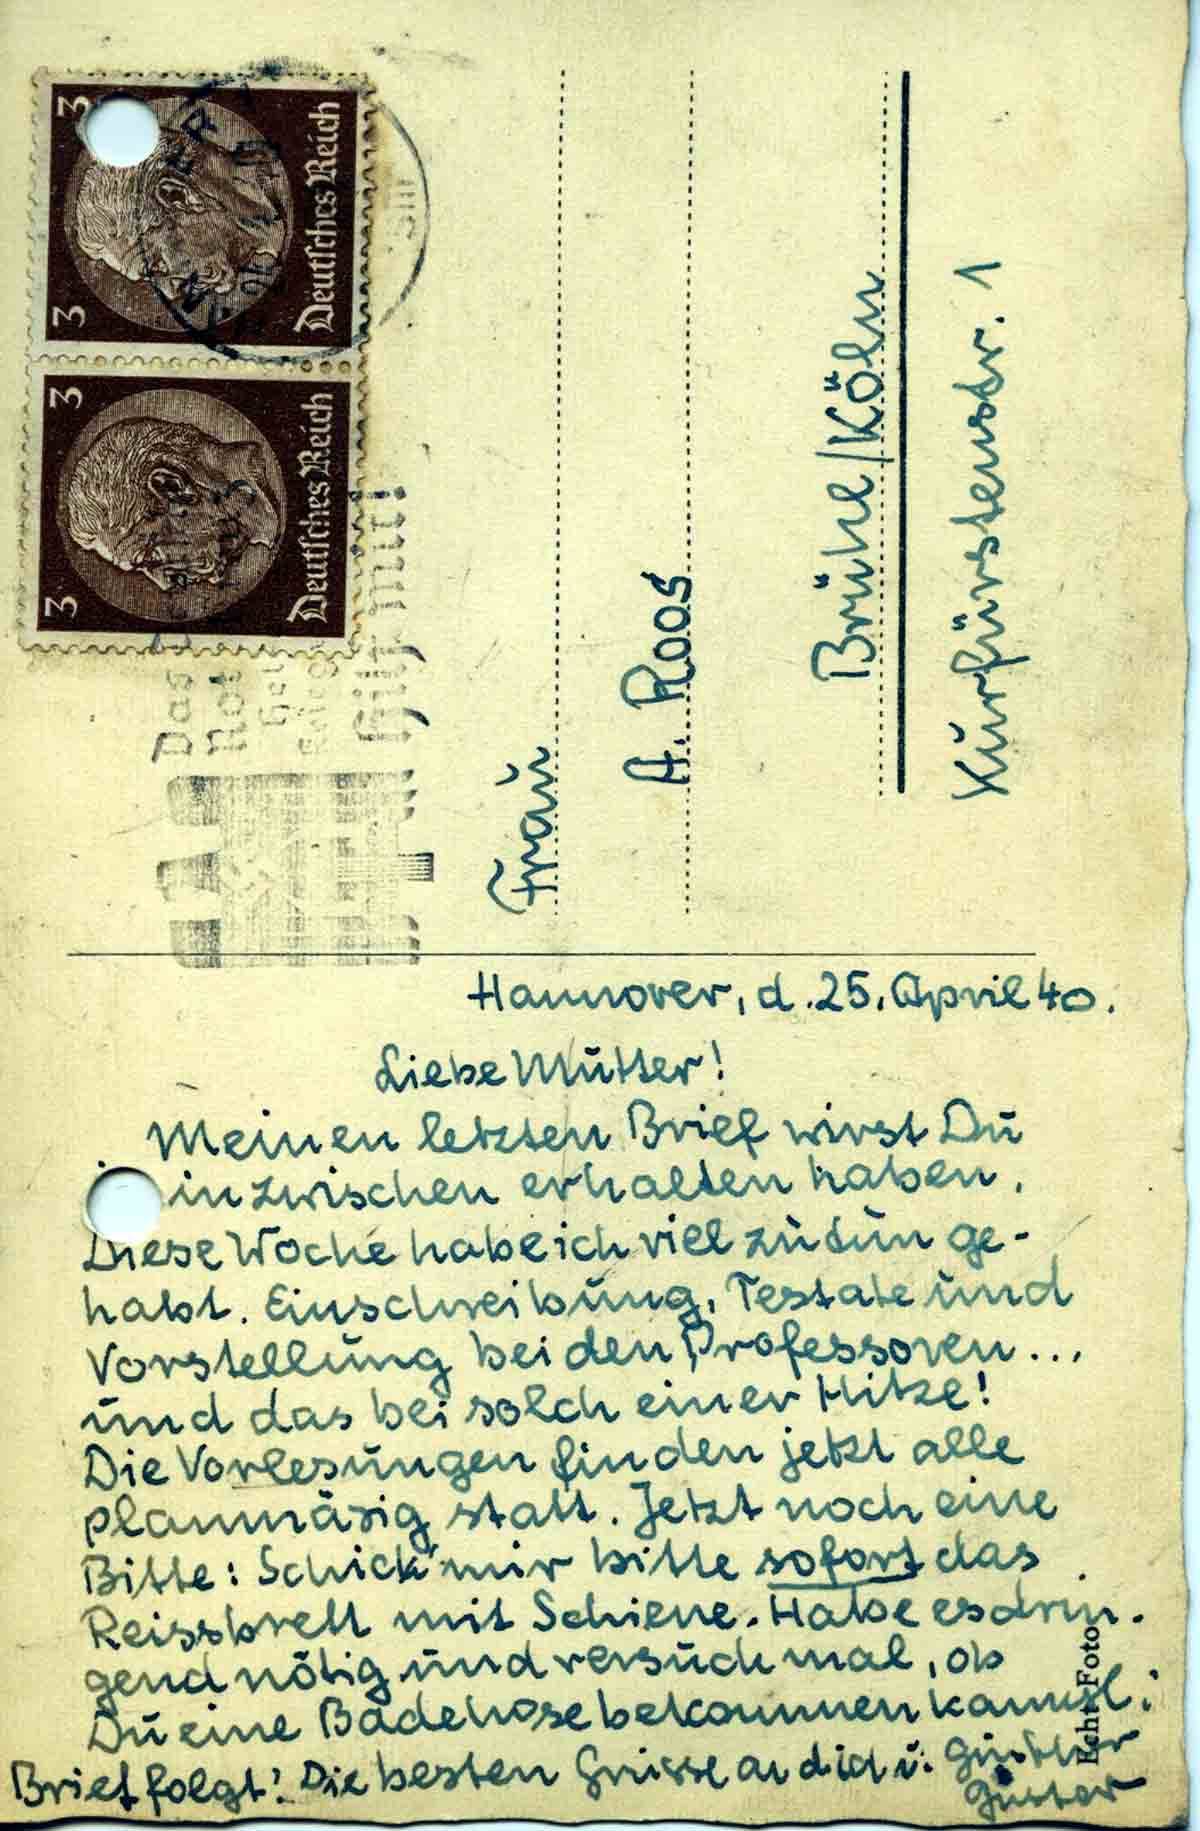 3
3
Deutsches Reich
3
3
Deutsches Reich
Das
Rot
Hilf mit!
Frau
A. Roos
Brühl/Köln
Kurfürstenstr. 1
Hannover, d. 25. April 40.
Liebe Mutter!
Meinen letzten Brief wirst Du
inzwischen erhalten haben.
Diese Woche habe ich viel zu tun ge-
habt. Einschreibung, Testate und
Vorstellung bei den Professoren...
und das bei solch einer Hitze!
Die Vorlesungen finden jetzt alle
planmäsig statt. Jetzt noch eine
Bitte: Schick' mir bitte sofort das
Reissbrett mit Schiene. Habe es drin-
gend nötig und versuch mal, ob
Du eine Badehose bekommen kannst.
Brief folgt! Die besten Grüsse an dich u. Günther
Echt Foto